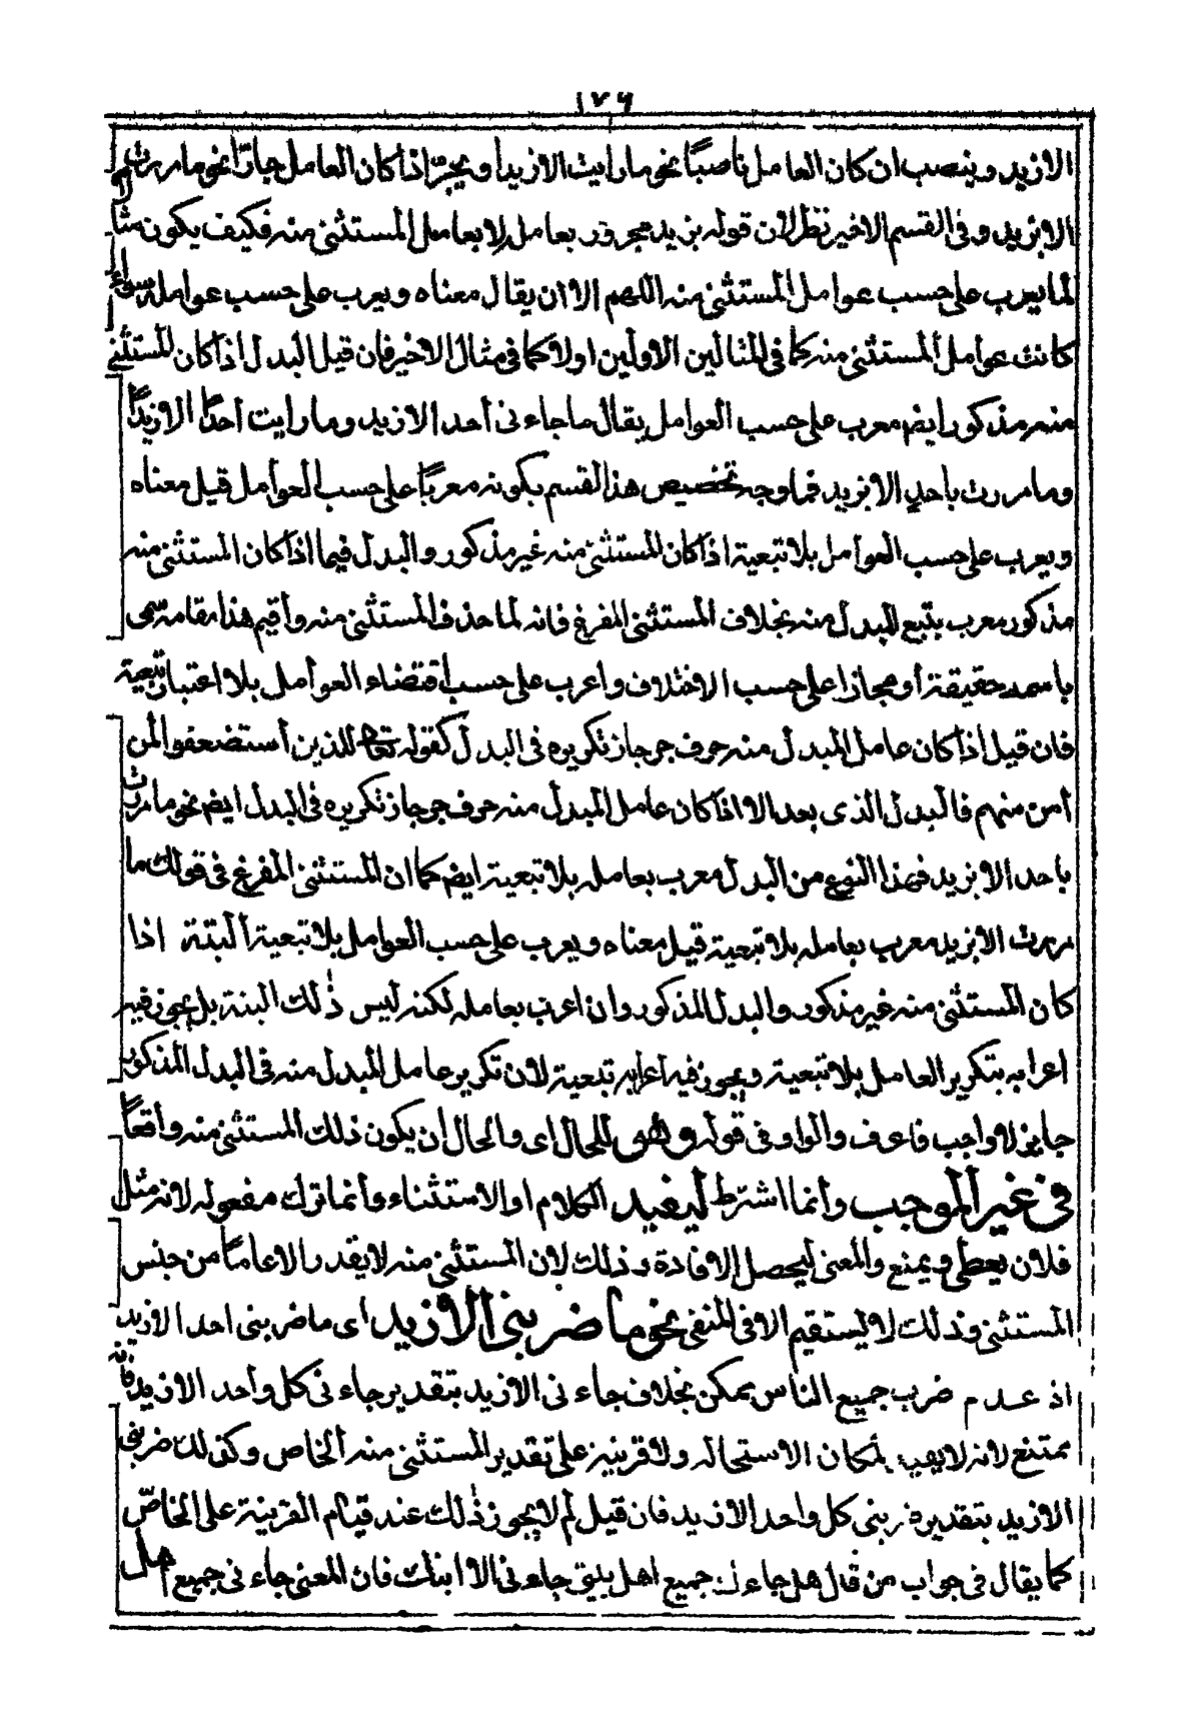 ١٧٦
الا زيد وينصب ان كان العامل ناصبًا نحو ما رايت الا زيدا ويجرّ اذا كان العامل جارّا نحو ما مررت
الا بزيد وفى القسم الاخير نظر لان قوله بزيد مجرور بعامله لا بعامل المستثنى منه فكيف يكون مثالا
لما يعرب على حسب عوامل المستثنى منه اللهم الا ان يقال معناه ويعرب على حسب عوامله سواء
كانت عوامل المستثنى منه كما فى المثالين الاولين اولا كما فى مثال الاخير فان قيل البدل اذا كان المستثنى
منه مذكورا ايضم معرب على حسب العوامل يقال ما جاءنى أحد الا زيد وما رايت أحدًا الا زيدًا
وما مررت باحدٍ الا بزيد فما وجه تخصيص هذا القسم بكونه معربًا على حسب العوامل قيل معناه
ويعرب على حسب العوامل بلا تبعية اذا كان المستثنى منه غير مذكور والبدل فيما اذا كان المستثنى منه
مذكور معرب بتبع المبدل منه بخلاف المستثنى المفرغ فانه لما حذف المستثنى منه وأقيم هذا مقامه سمى
باسمه حقيقة أو مجازا على حسب الاختلاف واعرب على حسب أقتضاء العوامل بلا اعتبار تبعية
فان قيل اذا كان عامل المبدل منه حرف جر جاز تكريره فى البدل كقوله تعالى للذين أستضعفوا لمن
أمن منهم فالبدل الذى بعد الا اذا كان عامل المبدل منه حرف جر جاز تكريره فى البدل ايضم نحو ما مررت
باحد الا بزيد فهذا النوع من البدل معرب بعامله بلا تبعية ايضم كما ان المستثنى المفرغ فى قولك ما
مررت الا بزيد معرب بعامله بلا تبعية قيل معناه ويعرب على حسب العوامل بلا تبعية ألبتة اذا
كان المستثنى منه غير مذكور والبدل المذكور وان اعرب بعامله لكنه ليس ذٰلك البتة بل يجوز فيه
اعرابه بتكرير العامل بلا تبعية ويجوز فيه أعرابه تبعية لان تكرير عامل المبدل منه فى البدل المذكور
جايز لا واجب فاعرف والواو فى قوله وهى للحال اى والحال ان يكون ذلك المستثنى منه واقعاً
فى غير الموجب وأنما اشترط ليفيد الكلام او الاستثناء وأنما ترك مفعوله لانه مثل
فلان يعطى ويمنع والمعنى ليحصل الافادة وذلك لان المستثنى منه لا يقدر الا عامًا من جنس
المستثنى وذلك لا يستقيم الا فى المنفى نحو ما ضربنى الا زيد اى ما ضربنى احد الا زيد
اذ عدم ضرب جميع الناس يمكن بخلاف جاءنى الا زيد بتقدير جاءنى كل واحد الا زيد فانه
يمتنع لانه لا يصير لمكان الاستحالة ولا قرينة على تقدير المستثنى منه الخاص وكذلك ضربنى
الا زيد بتقدير ضربنى كل واحد الا زيد فان قيل لم لا يجوز ذٰلك عند قيام القرينة على الخاصّ
كما يقال فى جواب من قال هل جاءك جميع اهل بيتى جاءنى الا ابنك فان المعنى جاءنى جميع أهل